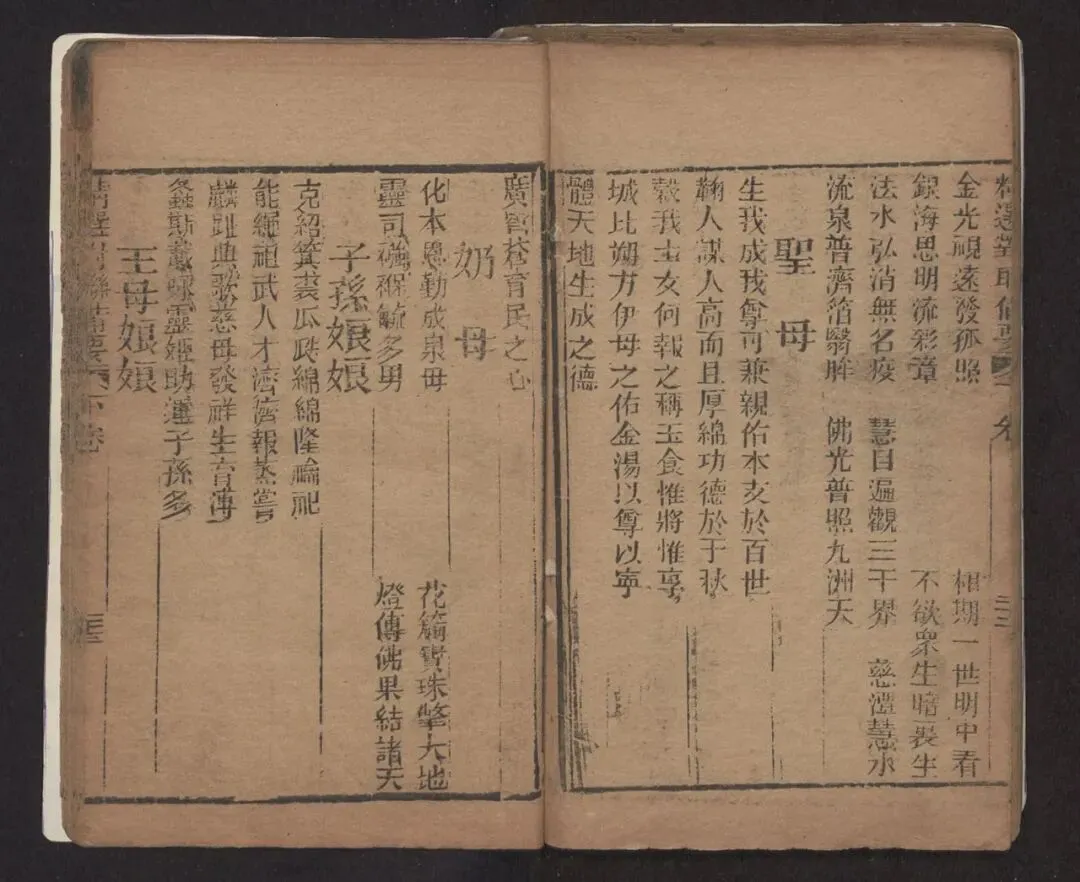 精選對聯備要 卷
金光視遠發孤照 極期一世明中看
銀海思明流彩章 不欲衆生暗裏生
法水弘消無名疫 慧目遍觀三千界 慈澧慧水
流泉普濟箔翳眸 佛光普照九洲天
聖母
生我成我尊可兼親佑本支於百世
鞠人謀人高而且厚綿功德於千秋
穀我士女何報之稱玉食惟將惟享
城比朔方伊母之佑金湯以尊以寧
體天地生成之德
廣智 育民之心
奶母
化本恩勤成泉母 花簫寶珠擎大地
靈司襁褓毓多男 燈傳佛果結諸天
子孫娘娘
克紹箕裘瓜瓞綿綿隆禴祀
能繩祖武人才濟濟報蒸嘗
麟趾典歌慈母發祥生育溥
螽斯蟄 靈姬助運子孫多
王母娘娘